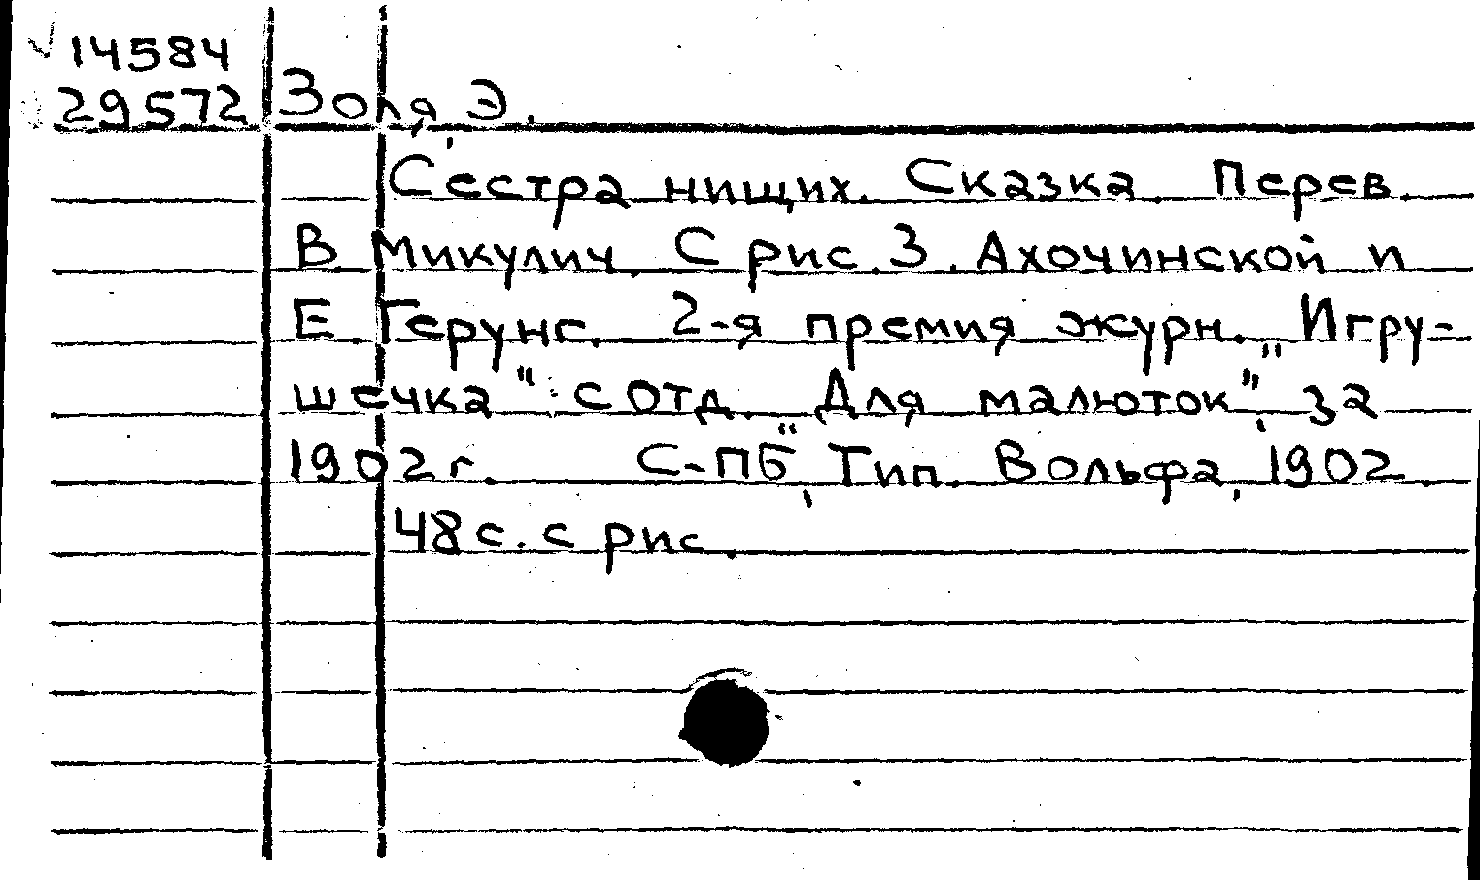 14584
29572 Золя, Э.
Сестра нищих. Сказка. Перев.
В. Микулич. С рис. З. Ахочинской и
Е. Герунг. 2-я премия журн. „Игру-
шечка": с отд. „Для малюток", за
1902 г. С-ПБ, Тип. Вольфа, 1902.
48 с. с рис.